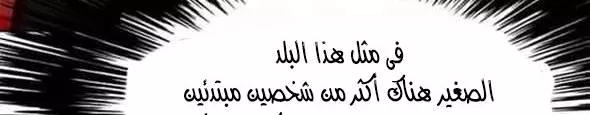 فى مثل هذا البلد
الصغير هناك أكثر من شخصين مبتدئين